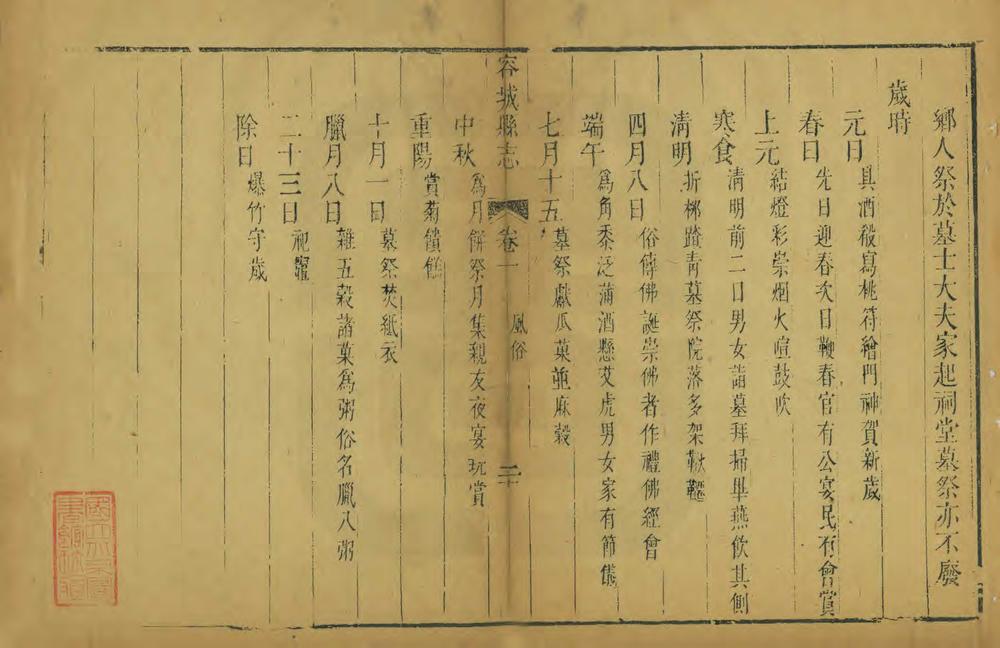 鄉人祭於墓士大夫家起祠堂墓祭亦不廢
歲時
元日具酒殽寫桃符繪門神賀新歲
春日先日迎春次日鞭春官有公宴民有會賞
上元結燈彩崇烟火喧鼓吹
寒食清明前二日男女詣墓拜掃畢燕飲其側
清明折桺蹅青墓祭院落多架鞦韆
四月八日俗傳佛誕崇佛者作禮佛經會
端午為角黍泛蒲酒懸艾虎男女家有節儀
七月十五墓祭獻瓜菓並麻穀
容城縣志
卷一
風俗
二
中秋為月餅祭月集親友夜宴玩賞
重陽賞菊饋餻
十月一日墓祭焚紙衣
臘月八日雜五穀諸菓為粥俗名臘八粥
二十三日祀竈
除日爆竹守歲